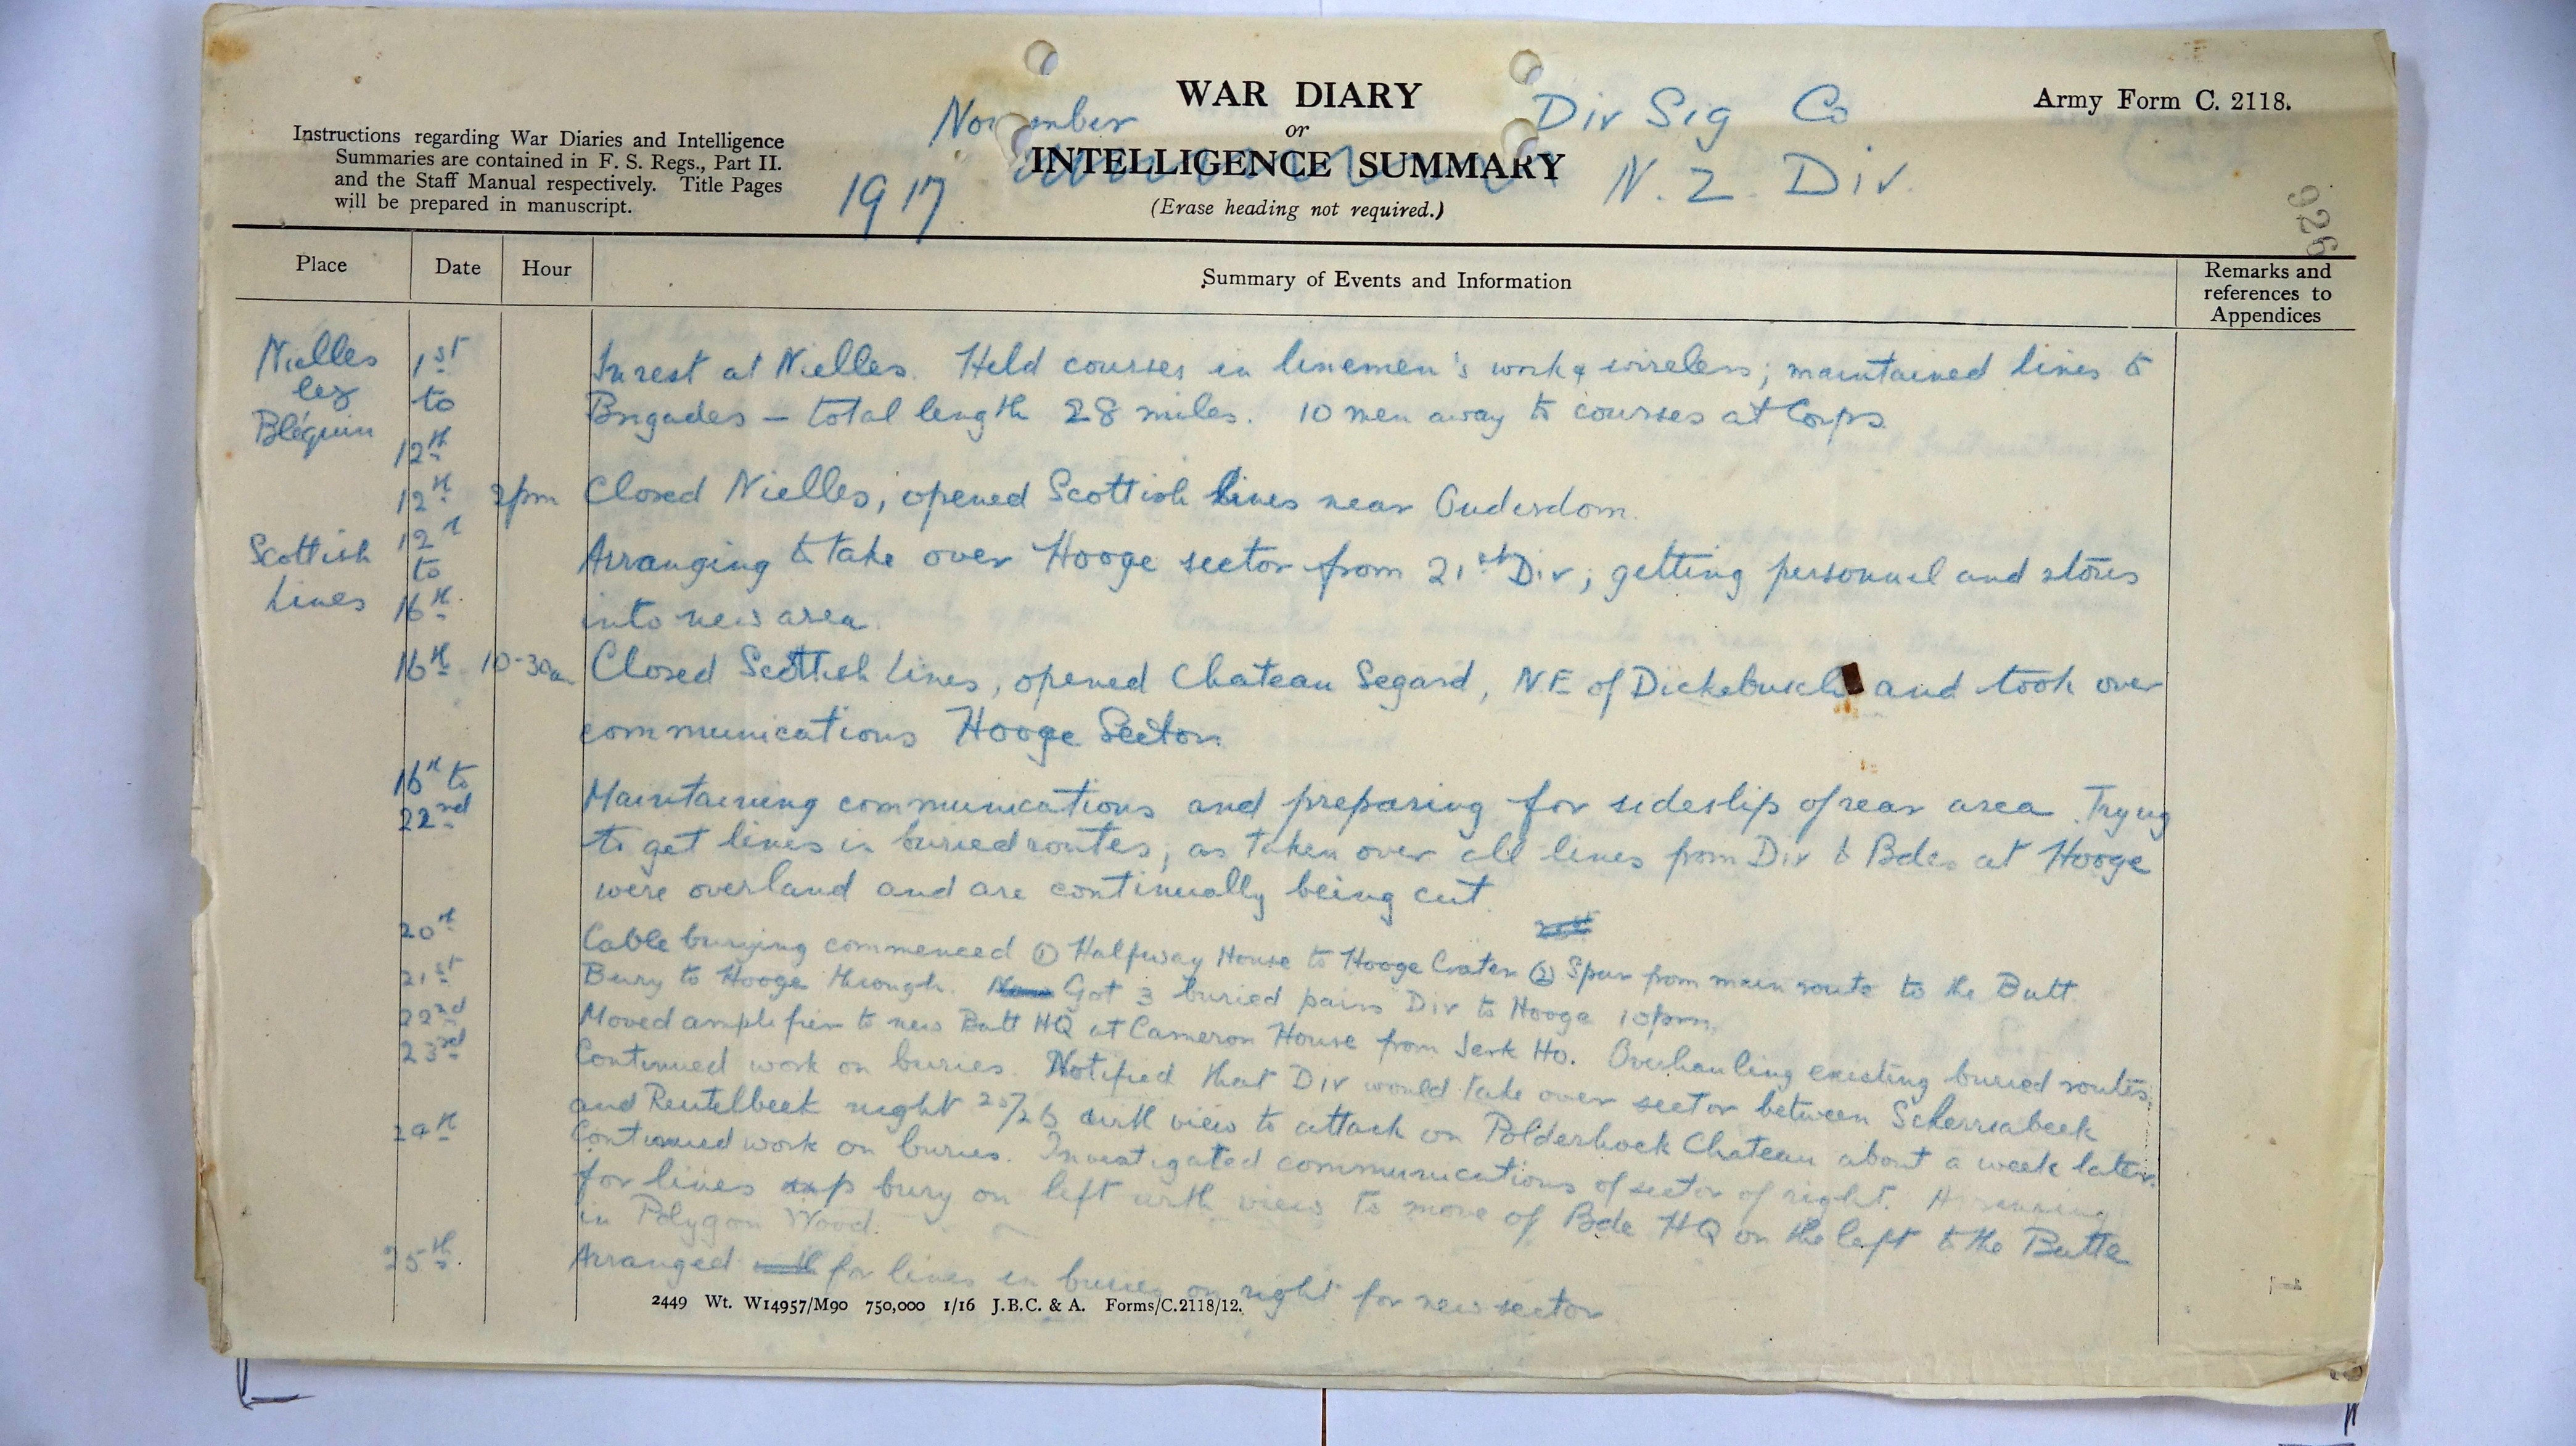 WAR DIARY
or
INTELLIGENCE SUMMARY
(Erase heading not required.)
Army Form C. 2118.
Instructions regarding War Diaries and Intelligence
Summaries are contained in F. S. Regs., Part II.
and the Staff Manual respectively. Title Pages
will be prepared in manuscript.
November
1917
Div Sig Co
N.Z. Div.
926
Place Date Hour Summary of Events and Information Remarks and references to Appendices
Nielles 1st In rest at Nielles. Held courses in linemen's work & wireless; maintained lines to
lez to Brigades – total length 28 miles. 10 men away to courses at Corps.
Bléquin 12th
12th 2pm Closed Nielles, opened Scottish Lines near Ouderdom.
Scottish 12th to Arranging to take over Hooge sector from 21st Div; getting personnel and stores
Lines 16th into new area.
16th 10-30a Closed Scottish Lines, opened Chateau Segard, NE of Dickebusch and took over
communications Hooge Sector.
16th to Maintaining communications and preparing for sideslip of rear area. Trying
22nd to get lines in buried routes, as taken over all lines from Div to Bdes at Hooge
were overland and are continually being cut.
20th Cable burying commenced (1) Halfway House to Hooge Crater (2) Spur from main route to the Butt
21st Bury to Hooge through. Got 3 buried pairs Div to Hooge 10pm.
22nd Moved amplifier to new Batt HQ at Cameron House from Jerk Ho. Overhauling existing buried routes.
23rd Continued work on buries. Notified that Div would take over sector between Scherriabeek
and Reutelbeek night 25/26 with view to attack on Polderhoek Chateau about a week later.
24th Continued work on buries. Investigated communications of sector of right. Arranging
for lines up bury on left with view to move of Bde HQ on the left to the Butte
in Polygon Wood.
25th Arranged for lines in buries on right for new sector
2449 Wt. W14957/M90 750,000 1/16 J.B.C. & A. Forms/C.2118/12.